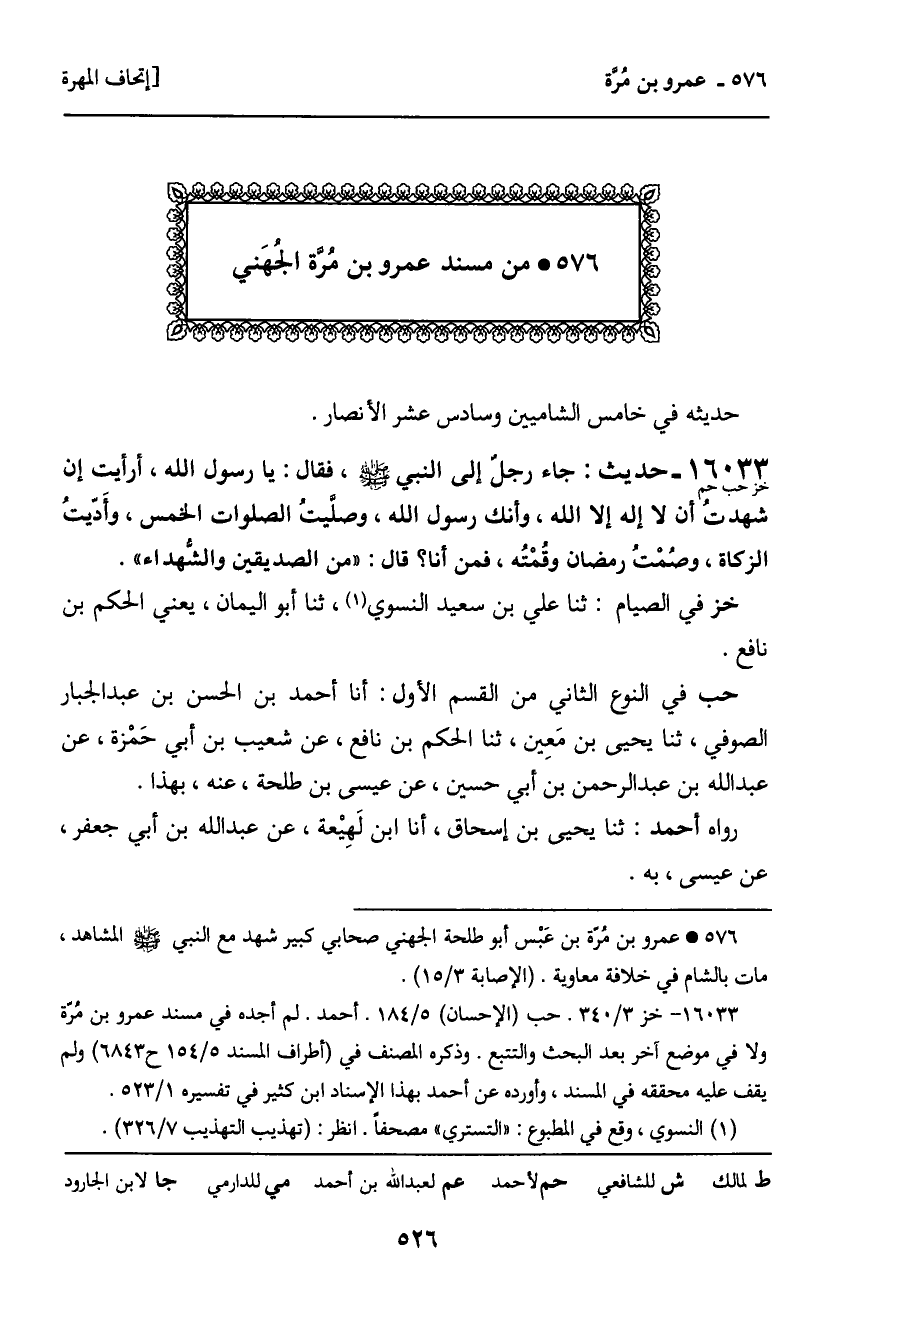 ٥٧٦ ـ عمرو بن مُرَّة
[إتحاف المهرة
٥٧٦ ● من مسند عمرو بن مُرَّة الجُهَني
حديثه في خامس الشاميين وسادس عشر الأنصار .
١٦٠٣٣ ـ حديث : جاء رجلٌ إلى النبي ﷺ ، فقال : يا رسول الله ، أرأيت إن
خز حب حم
شهدتُ أن لا إله إلا الله ، وأنك رسول الله ، وصلَّيتُ الصلوات الخمس ، وأَدّيتُ
الزكاة ، وصُمْتُ رمضان وقُمْتُه ، فمن أنا؟ قال : «من الصديقين والشُّهداء» .
خز في الصيام : ثنا علي بن سعيد النسوي(١) ، ثنا أبو اليمان ، يعني الحكم بن
نافع .
حب في النوع الثاني من القسم الأول : أنا أحمد بن الحسن بن عبدالجبار
الصوفي ، ثنا يحيى بن مَعِين ، ثنا الحكم بن نافع ، عن شعيب بن أبي حَمْزة ، عن
عبدالله بن عبدالرحمن بن أبي حسين ، عن عيسى بن طلحة ، عنه ، بهذا .
رواه أحمد : ثنا يحيى بن إسحاق ، أنا ابن لَهِيْعة ، عن عبدالله بن أبي جعفر ،
عن عيسى ، به .
٥٧٦ ● عمرو بن مُرّة بن عَبْس أبو طلحة الجهني صحابي كبير شهد مع النبي ﷺ المشاهد ،
مات بالشام في خلافة معاوية . (الإصابة ١٥/٣) .
١٦٠٣٣- خز ٣٤٠/٣ . حب (الإحسان) ١٨٤/٥ . أحمد . لم أجده في مسند عمرو بن مُرّة
ولا في موضع آخر بعد البحث والتتبع . وذكره المصنف في (أطراف المسند ١٥٤/٥ ح٦٨٤٣) ولم
يقف عليه محققه في المسند ، وأورده عن أحمد بهذا الإسناد ابن كثير في تفسيره ٥٢٣/١ .
(١) النسوي ، وقع في المطبوع : «التستري» مصحفاً . انظر : (تهذيب التهذيب ٣٢٦/٧) .
ط لمالك ش للشافعي حم لأحمد عم لعبدالله بن أحمد مي للدارمي جا لابن الجارود
٥٢٦